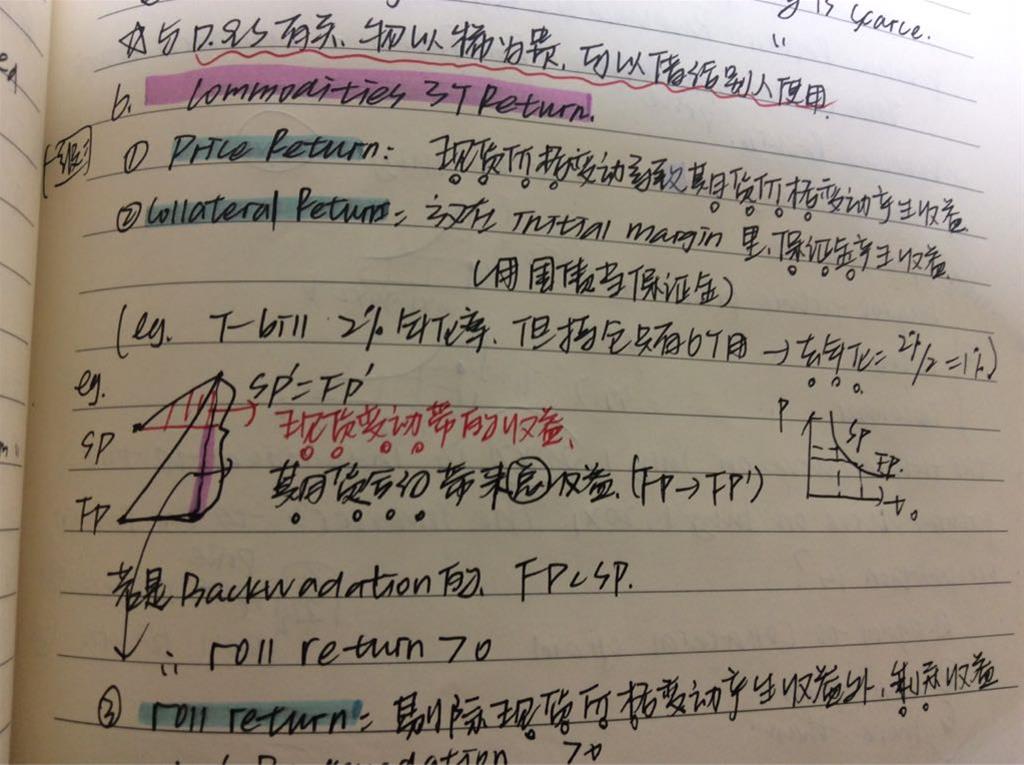 y is scarce.
☆与 D.&S 有关. 物以稀为贵, 可以借给别人使用.
b. Commodities 3个 Return.
① Price Return: 现货价格变动导致期货价格变动产生收益.
② Collateral Return: 放在 initial margin 里, 保证金产生收益.
(用国债当保证金)
(eg. T-bill 2% 年化率. 但持仓只有6个月 → 去年化 = 2%/2 = 1%)
eg.
SP' = FP'
现货变动带的收益.
SP
FP
期货后动带来总收益. (FP→FP')
P
SP
FP.
t
若是Backwadation的. FP<SP.
∴ roll return >0
③ roll return = 剔除现货价格变动产生收益外, 剩余收益
Backwadation >0